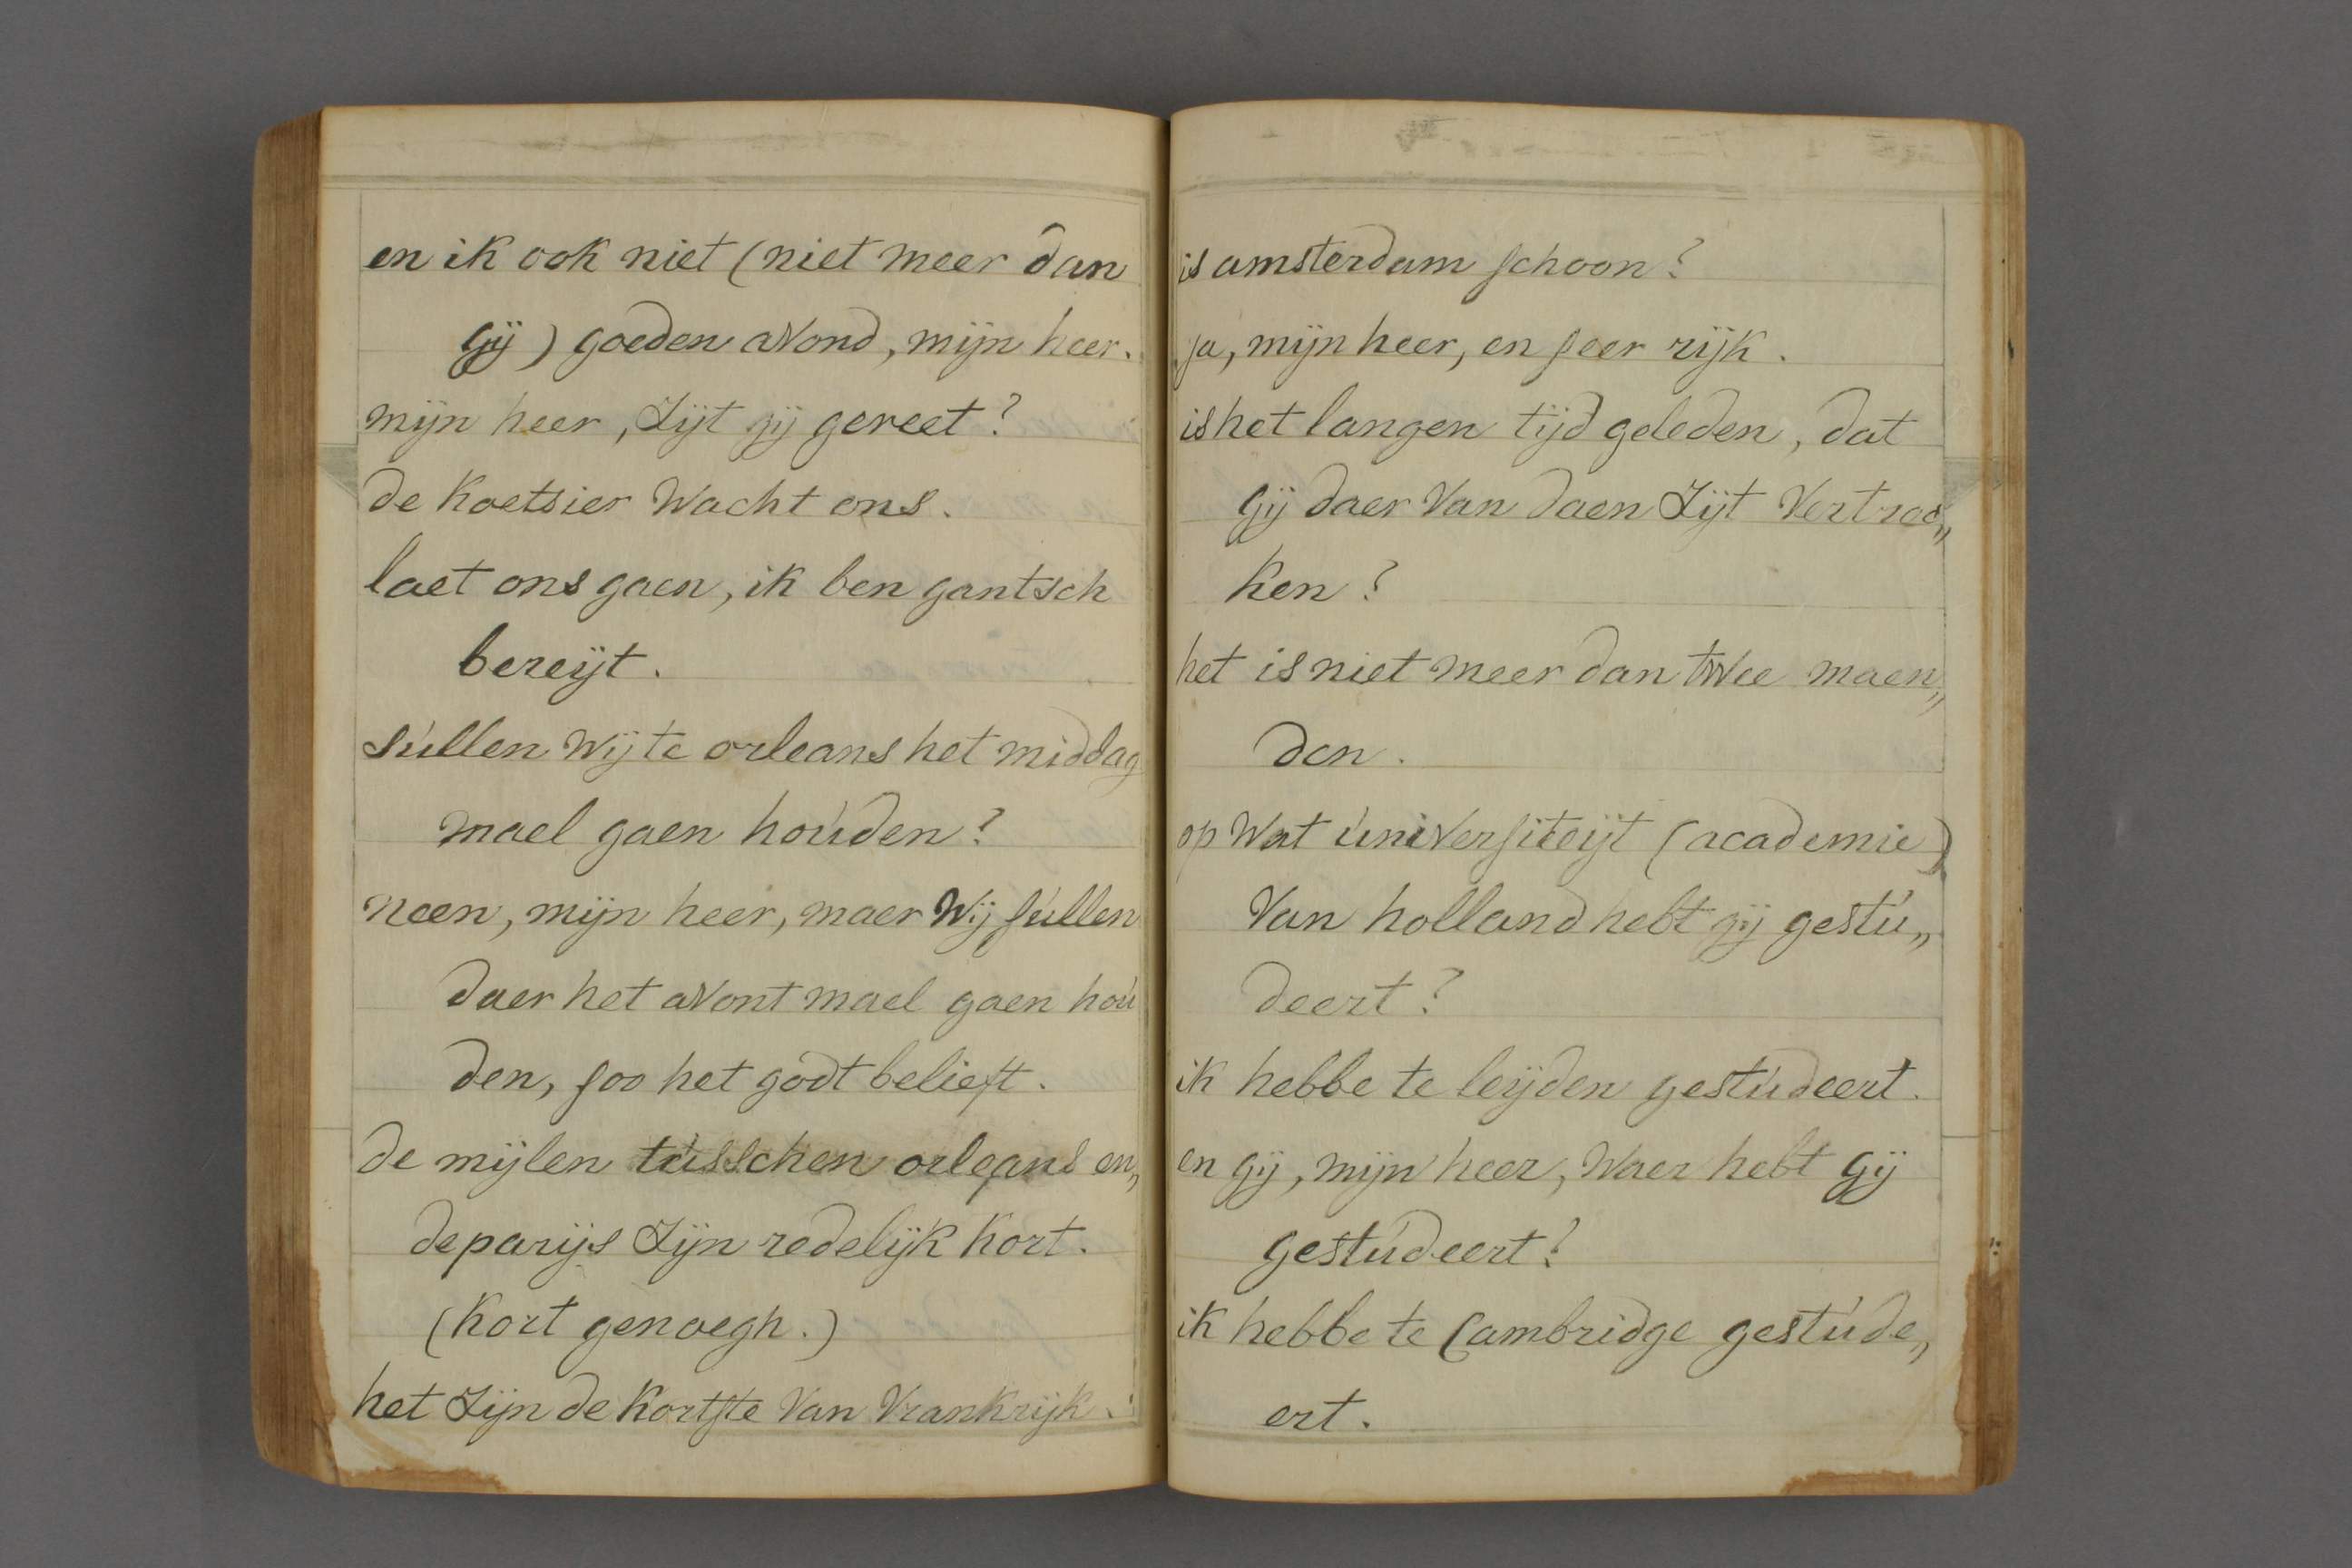 en ik ook niet (niet meer dan
gij) goeden avond, mijn heer.
mijn heer, Zijt gij gereet?
de koetsier Wacht ons.
laet ons gaen, ik ben gantsch
bereijt.
súllen Wij te orleans het middag
mael gaen hoúden?
neen, mijn heer, maer Wij súllen
daer het avont mael gaen hoú
den, soo het godt belieft.
de mijlen tússchen orleans en„
de parijs Zijn redelijk kort.
(kort genoegh.)
het Zijn de kortste Van Vrankrijk.
is amsterdam schoon?
ja, mijn heer, en seer rijk.
is het langen tijd geleden, dat
gij daer Van daen Zijt Vertroc„
ken?
het is niet meer dan tWee maen„
den.
op Wat úniversiteijt (academie)
Van holland hebt gij gestú„
deert?
ik hebbe te leijden gestúdeert.
en gij, mijn heer, Waer hebt gij
gestúdeert?
ik hebbe te Cambridge gestúde„
ert.